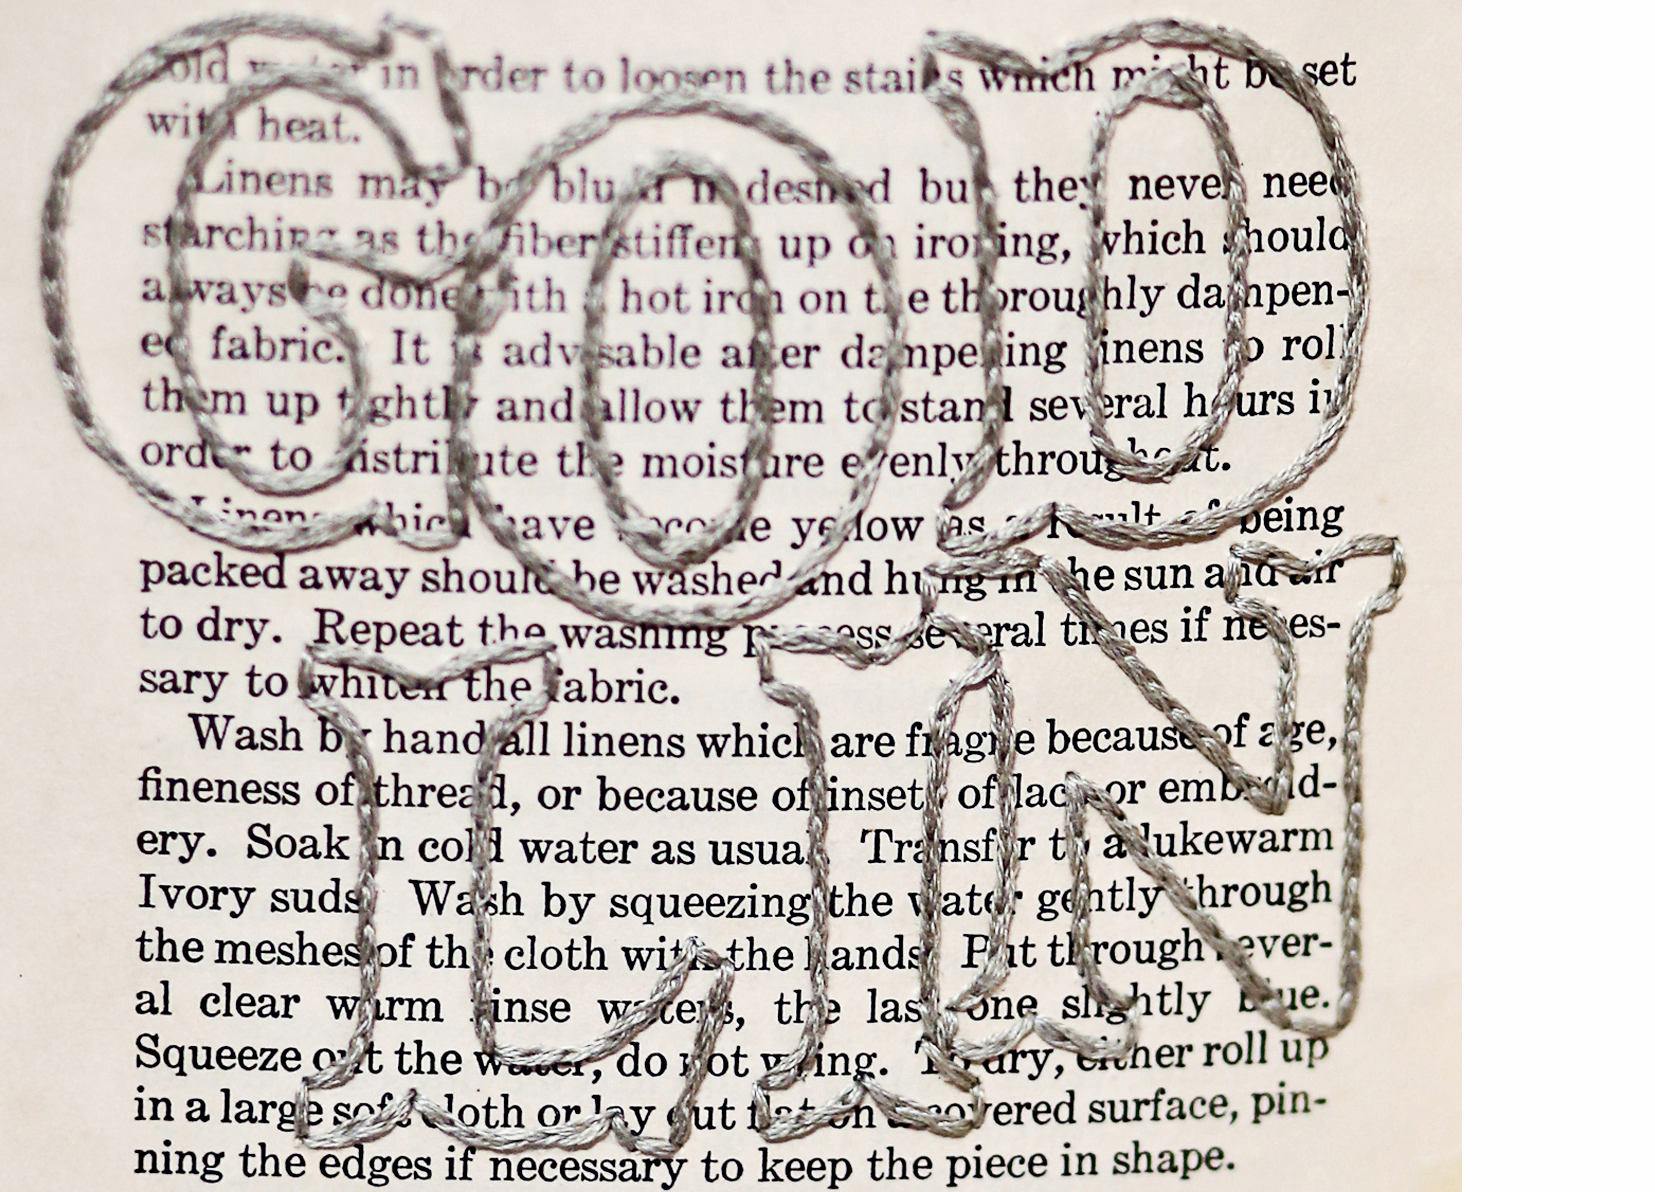 GOD
LIN
cold water in order to loosen the stains which might be set
with heat.
Linens may be blued if desired but they never need
starching as the fiber stiffens up on ironing, which should
always be done with a hot iron on the thoroughly dampen-
ed fabric. It is advisable after dampening linens to roll
them up tightly and allow them to stand several hours in
order to distribute the moisture evenly throughout.
Linens which have become yellow as a result of being
packed away should be washed and hung in the sun and air
to dry. Repeat the washing process several times if neces-
sary to whiten the fabric.
Wash by hand all linens which are fragile because of age,
fineness of thread, or because of insets of lace or embroid-
ery. Soak in cold water as usual. Transfer to a lukewarm
Ivory suds. Wash by squeezing the water gently through
the meshes of the cloth with the hands. Put through sever-
al clear warm rinse waters, the last one slightly blue.
Squeeze out the water, do not wring. To dry, either roll up
in a large soft cloth or lay out flat on a covered surface, pin-
ning the edges if necessary to keep the piece in shape.